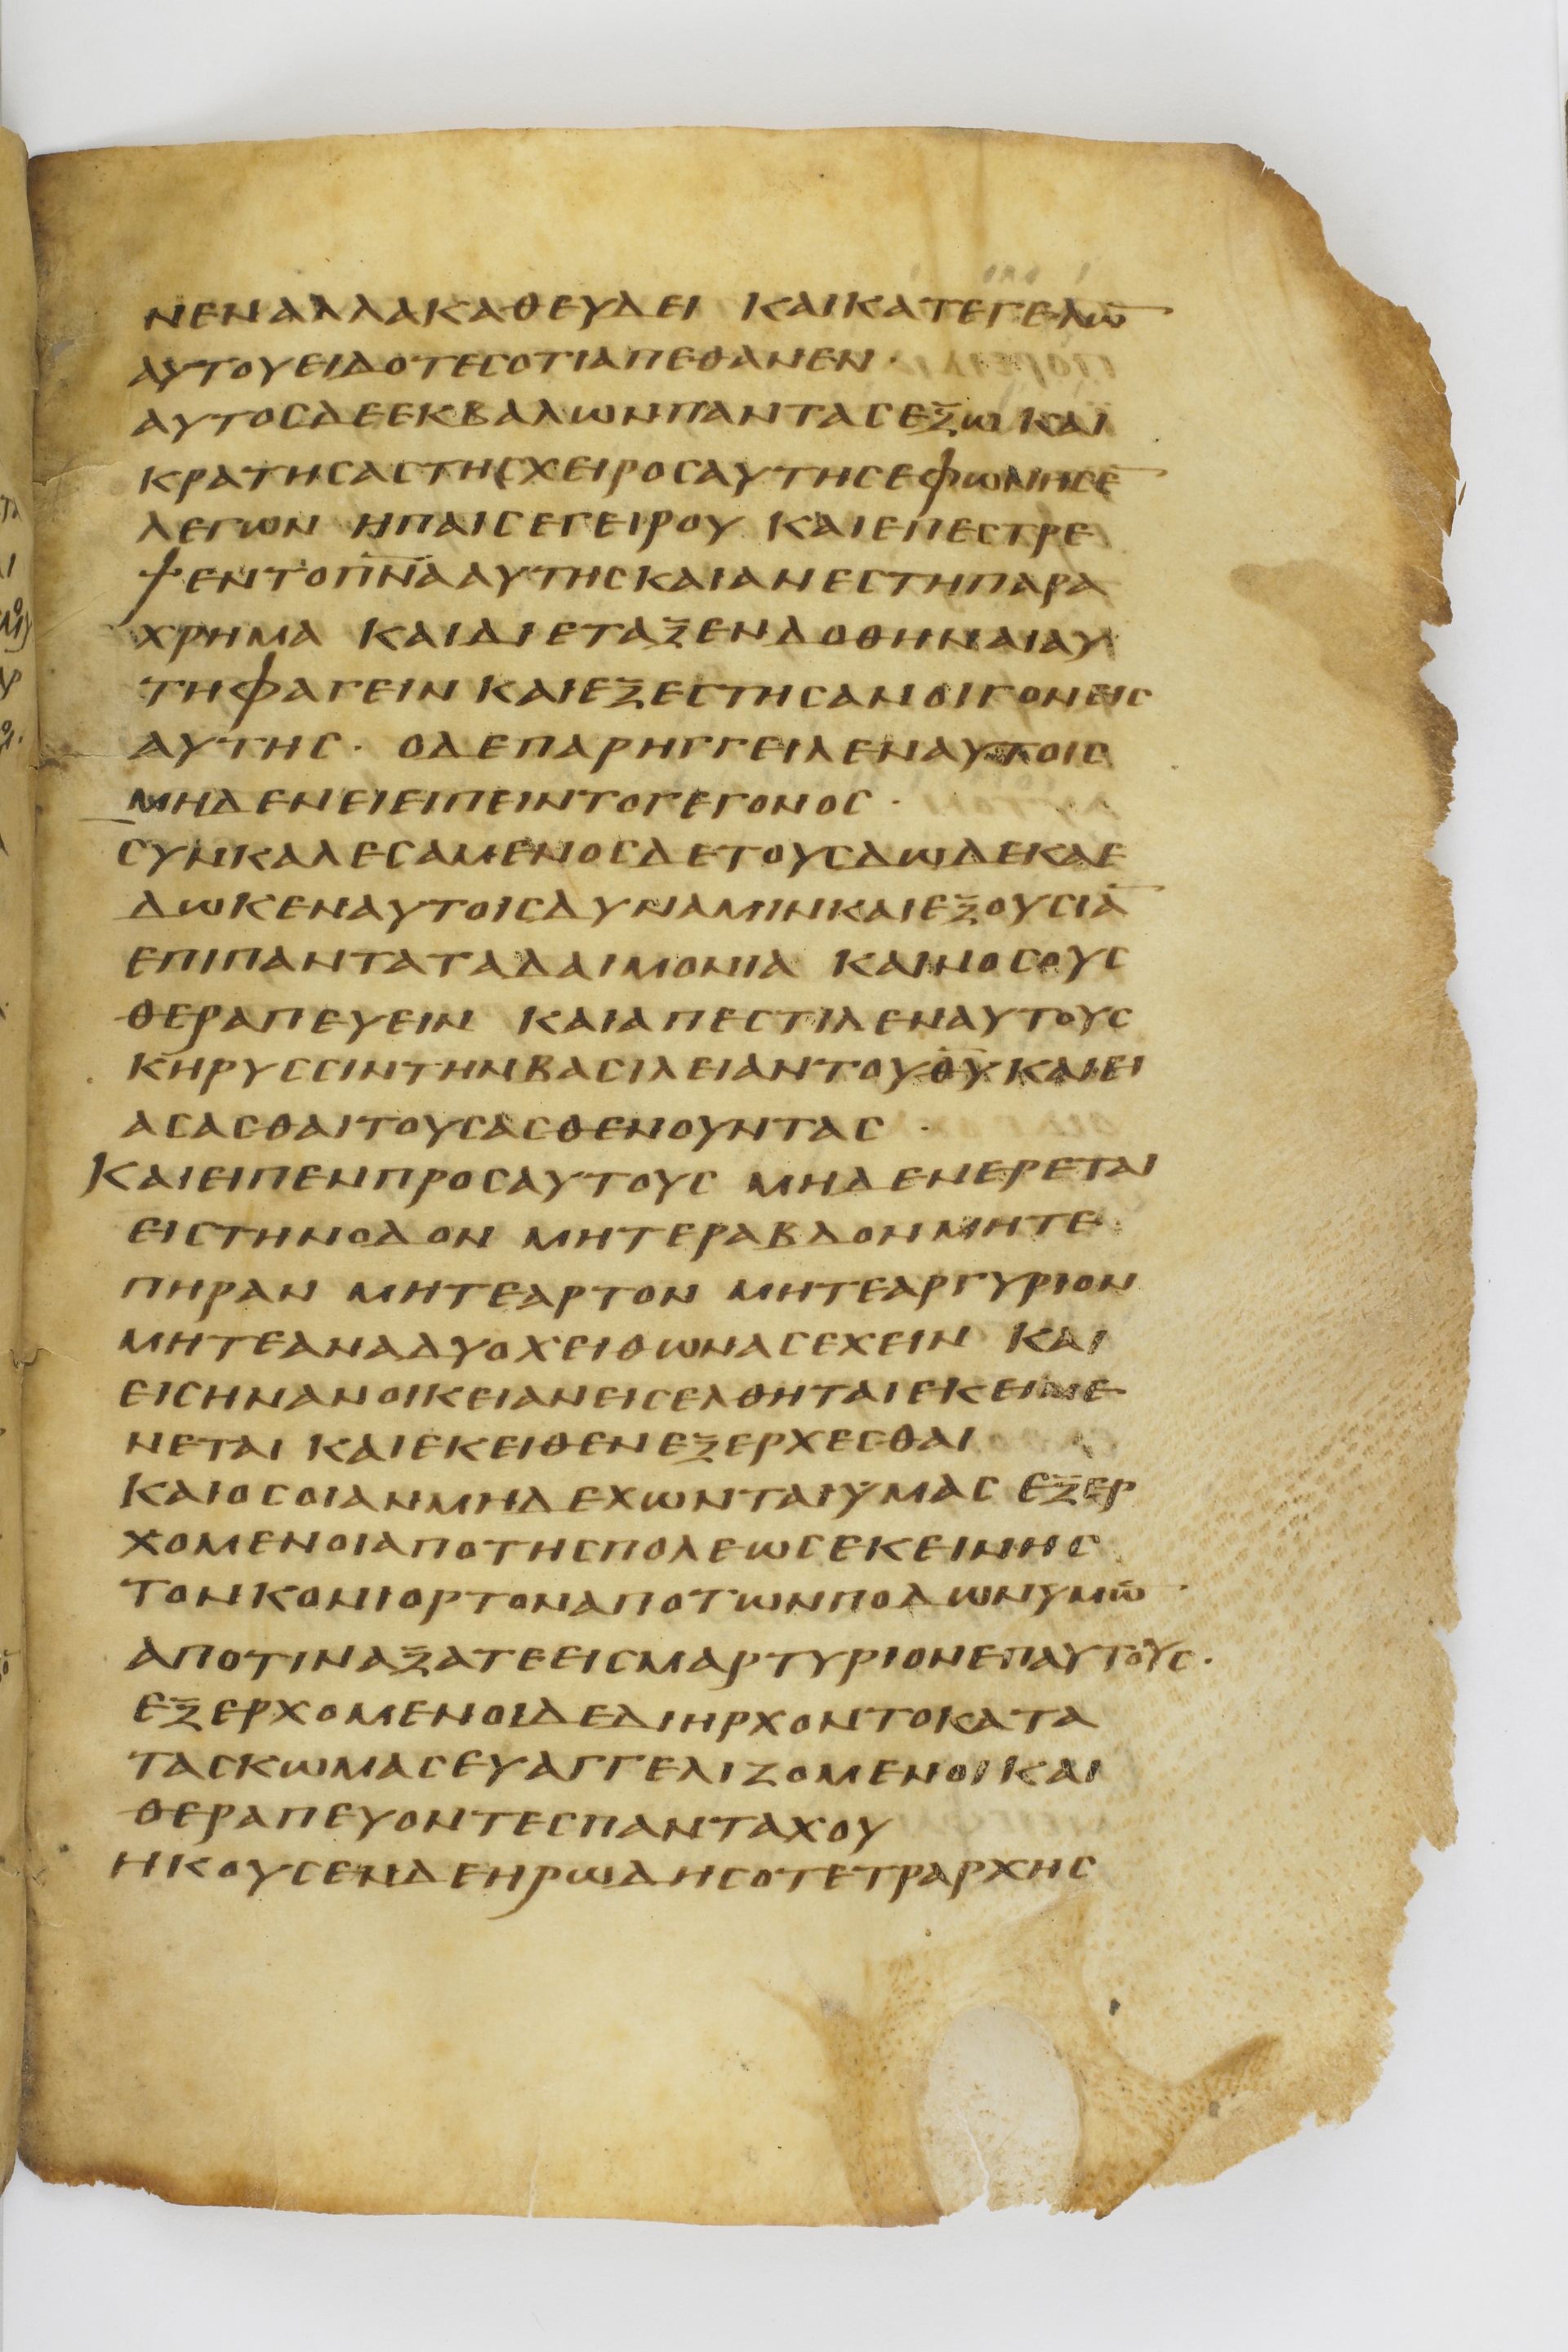 ΝΕΝΑΛΛΑΚΑΘΕΥΔΕΙ ΚΑΙΚΑΤΕΓΕΛΩ̅
ΑΥΤΟΥΕΙΔΟΤΕСΟΤΙΑΠΕΘΑΝΕΝ·
ΑΥΤΟСΔΕΕΚΒΑΛΩΝΠΑΝΤΑСΕΞΩ ΚΑΙ
ΚΡΑΤΗСΑСΤΗСΧΕΙΡΟСΑΥΤΗСΕΦΩΝΗСΕ̅
ΛΕΓΩΝ ΗΠΑΙСΕΓΕΙΡΟΥ ΚΑΙΕΠΕСΤΡΕ
ΨΕΝΤΟΠ̅Ν̅Α̅ΑΥΤΗСΚΑΙΑΝΕСΤΗΠΑΡΑ
ΧΡΗΜΑ ΚΑΙΔΙΕΤΑΞΕΝΔΟΘΗΝΑΙΑΥ
ΤΗΦΑΓΕΙΝ ΚΑΙΕΞΕСΤΗСΑΝΟΙΓΟΝΕΙС
ΑΥΤΗС· ΟΔΕΠΑΡΗΓΓΕΙΛΕΝΑΥΤΟΙС
ΜΗΔΕΝΕΙΕΙΠΕΙΝΤΟΓΕΓΟΝΟС·
СΥΝΚΑΛΕСΑΜΕΝΟСΔΕΤΟΥСΔΩΔΕΚΑΕ
ΔΩΚΕΝΑΥΤΟΙСΔΥΝΑΜΙΝΚΑΙΕΞΟΥСΙΑ̅
ΕΠΙΠΑΝΤΑΤΑΔΑΙΜΟΝΙΑ ΚΑΙΝΟСΟΥС
ΘΕΡΑΠΕΥΕΙΝ ΚΑΙΑΠΕСΤΙΛΕΝΑΥΤΟΥС
ΚΗΡΥССΙΝΤΗΝΒΑСΙΛΕΙΑΝΤΟΥΘ̅Υ̅ΚΑΙΕΙ
ΑСΑСΘΑΙΤΟΥСΑСΘΕΝΟΥΝΤΑС·
ΚΑΙΕΙΠΕΝΠΡΟСΑΥΤΟΥС ΜΗΔΕΝΕΡΕΤΑΙ
ΕΙСΤΗΝΟΔΟΝ ΜΗΤΕΡΑΒΔΟΝΜΗΤΕ
ΠΗΡΑΝ ΜΗΤΕΑΡΤΟΝ ΜΗΤΕΑΡΓΥΡΙΟΝ
ΜΗΤΕΑΝΑΔΥΟΧΕΙΘΩΝΑСΕΧΕΙΝ ΚΑΙ
ΕΙСΗΝΑΝΟΙΚΕΙΑΝΕΙСΕΛΘΗΤΑΙΕΚΕΙΜΕ
ΝΕΤΑΙ ΚΑΙΕΚΕΙΘΕΝΕΞΕΡΧΕСΘΑΙ
ΚΑΙΟСΟΙΑΝΜΗΔΕΧΩΝΤΑΙΥΜΑС ΕΞΕΡ
ΧΟΜΕΝΟΙΑΠΟΤΗСΠΟΛΕΩСΕΚΕΙΝΗС
ΤΟΝΚΟΝΙΟΡΤΟΝΑΠΟΤΩΝΠΟΔΩΝΥΜΩ̅
ΑΠΟΤΙΝΑΞΑΤΕΕΙСΜΑΡΤΥΡΙΟΝΕΠΑΥΤΟΥС·
ΕΞΕΡΧΟΜΕΝΟΙΔΕΔΙΗΡΧΟΝΤΟΚΑΤΑ
ΤΑСΚΩΜΑСΕΥΑΓΓΕΛΙΖΟΜΕΝΟΙΚΑΙ
ΘΕΡΑΠΕΥΟΝΤΕСΠΑΝΤΑΧΟΥ
ΗΚΟΥСΕΝΔΕΗΡΩΔΗСΟΤΕΤΡΑΡΧΗС